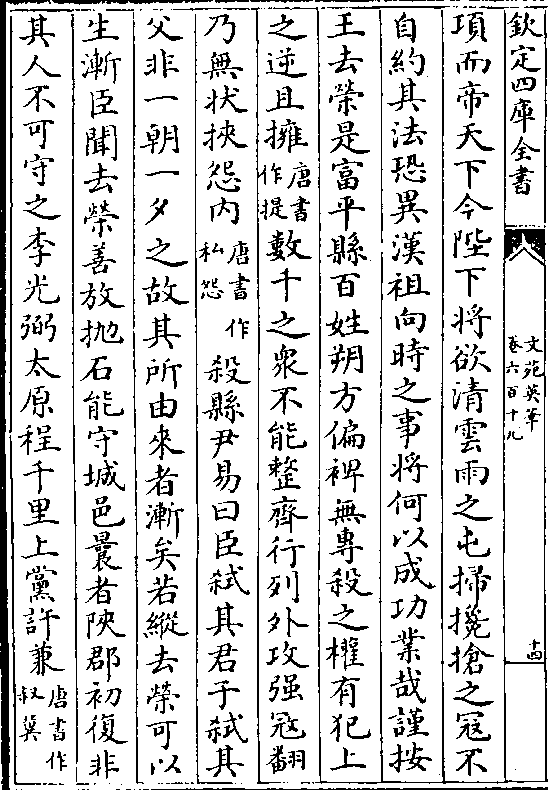 欽定四庫全書
文苑英華
卷六百十九
十四
項而帝天下今陛下將欲清雲雨之屯掃攙搶之冦不
自約其法恐異漢祖向時之事將何以成功業哉謹按
王去榮是富平縣百姓朔方偏裨無專殺之權有犯上
之逆且擁唐書作提數千之衆不能整齊行列外攻强冦翻
乃無状挾怨内唐書作私怨殺縣尹易曰臣弑其君子弑其
父非一朝一夕之故其所由來者漸矣若縱去榮可以
生漸臣聞去榮善放抛石能守城邑曩者陝郡初復非
其人不可守之李光弼太原程千里上黨許兼唐書作叔冀